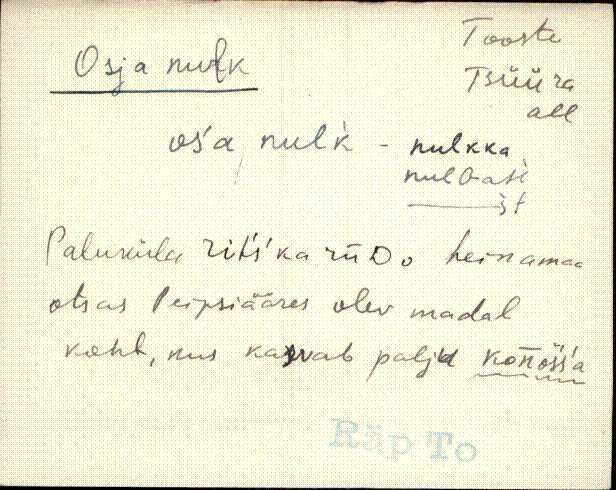 Osja nulk
Tooste
Tsüüra
all
ośa nulk̀ - nulkka
nulGaśi
śt
Paluküla riťśka rüDo heinamaa
otsas Peipsiääres olev madal
koht, kus kasvab palju
Räp To